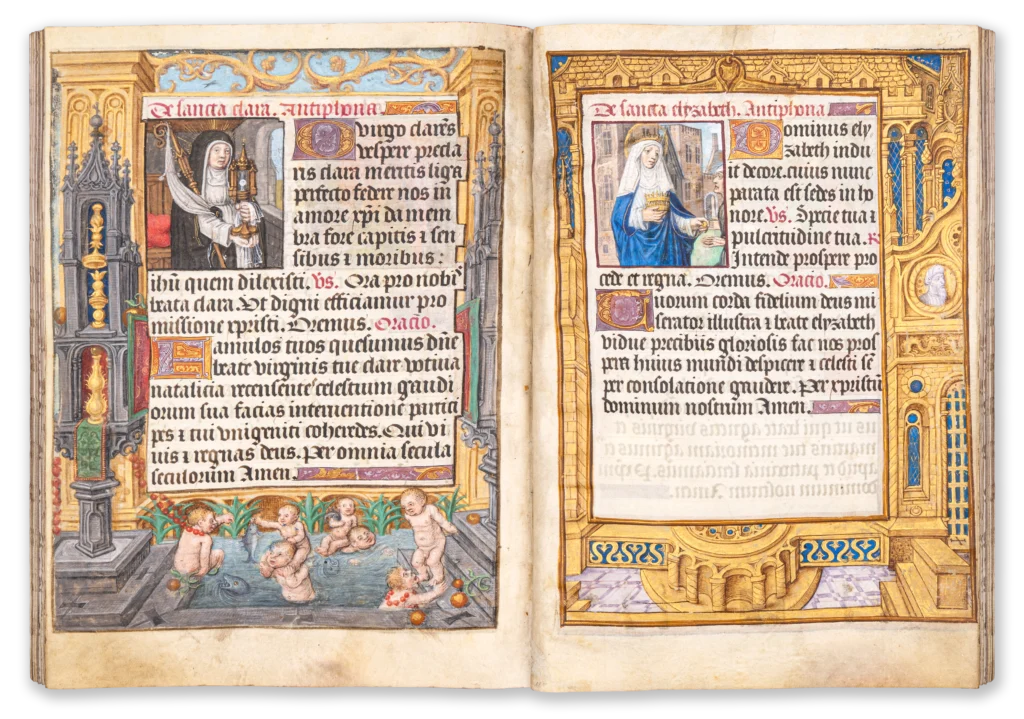 De sancta clara. Antiphona.
O virgo clarẽs
vespere precla
ris clara meritis liga
perfecto federe nos in
amore xp̃i da mem
bra fore capitis ⁊ sen
sibus ⁊ moribus:
ihũ quem dilexisti. Vs. Ora pro nobis
beata clara. Vt digni efficiamur pro
missione xpristi. Oremus. Oracio.
Famulos tuos quesumus dñe
beate virginis tue clare votiua
natalicia recensente celestium gaudi
orum sua facias interventione partici
pes ⁊ tui vnigeniti coheredes. Qui vi
uis ⁊ regnas deus. Per omnia secula
seculorum Amen.
De sancta elyzabeth. Antiphona
Dominus ely
zabeth indu
it decore. cuius nunc
parata est sedes in ho
nore. Vs. Specie tua ⁊
pulcritudine tua. R
Intende prospere pro
cede et regna. Oremus. Oracio.
Tuorum corda fidelium deus mi
serator illustra ⁊ beate elyzabeth
vidue precibus gloriosis fac nos pros
pera huius mundi despicere ⁊ celesti sẽ
per consolatione gaudere. Per xpristũ
dominum nostrum Amen.